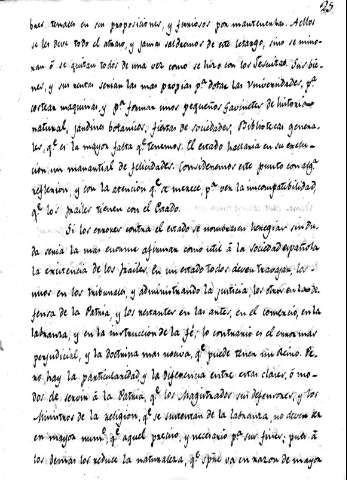 25
bres tenaces en sus proposiciones, y furiosos por mantenerlas. A ellos
se les debe todo el atraso, y jamas saldremos de este letargo, sino se mino-
ran ó se quitan todos de una vez como se hizo con los Jesuitas. Sus bie-
nes, y sus rentas serian las mas propias pª dotar las Universidades, pª
costear maquinas, y pª formar unos pequeños Gavinetes de historia
natural, jardines botanicos, fiestas de sociedades, Bibliotecas genera-
les, qᵉ es la mayor falta qᵉ tenemos. El estado hallaria en su execu-
cion un manantial de felicidades. Consideremos este punto con algª
reflexion, y con la atencion qᵉ se merece, pª ver la incompatibilidad,
qᵉ los frailes tienen con el Estado.
Si los errores contra el estado se nombrasen heregias sin du-
da seria la mas enorme afirmar como util á la sociedad española
la existencia de los frailes. En un estado todos deven trabajar, los
unos en los tribunales, y administrando la justicia, los otros en la de-
fensa de la Patria, y los restantes en las artes, en el comercio, en la
labranza, y en la instruccion de la fé; lo contrario es el error mas
perjudicial, y la doctrina mas nociva, qᵉ puede tener un Reino. Pe-
ro hay la particularidad y la diferencia entre estas clases, ó mo-
dos de servir á la Patria, qᵉ los Magistrados sus defensores, y los
Ministros de la religion, qᵉ se sustentan de la labranza, no deven ser
en mayor numº qᵉ aquel preciso, y necesario pª sus fines; pues á
los demas los reduce la naturaleza, qᵉ spre va en razon de mayor